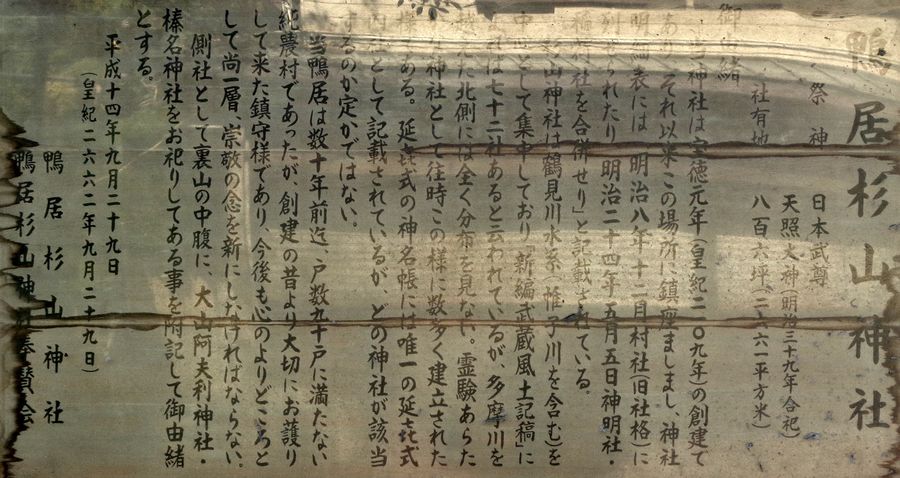 鴨居杉山神社
祭神 日本武尊
天照大神(明治三十九年合祀)
社有地 八百六坪(二六六一平方米)
御由緒
当神社は宝徳元年(皇紀二一〇九年)の創建で
あり、それ以来この場所に鎮座ましまし、神社
明細表には「明治八年十二月村社(旧社格)に
列せられたり 明治二十四年五月五日神明社・
社を合併せり」と記載されている。
杉山神社は鶴見川水系(帷子川を含む)を
中心として集中しており『新編武蔵風土記稿』に
よれば七十二社あると云われているが、多摩川を
越えた北側には全く分布を見ない。霊験あらた
神社として往時この様に数多く建立された
様である。延㐂式の神名帳には唯一の延㐂式
内社として記載されているが、どの神社が該当
するのか定かではない。
当鴨居は数十年前迄、戸数九十戸に満たない
純農村であったが、創建の昔より大切にお護り
して来た鎮守様であり、今後も心のよりどころと
して尚一層 崇敬の念を新にしなければならない。
側社として裏山の中腹に、大山阿夫利神社・
榛名神社をお祀りしてある事を附記して御由緒
とする。
平成十四年九月二十九日
(皇紀二六六二年九月二十九日)
鴨居杉山神社
鴨居杉山神社奉賛会